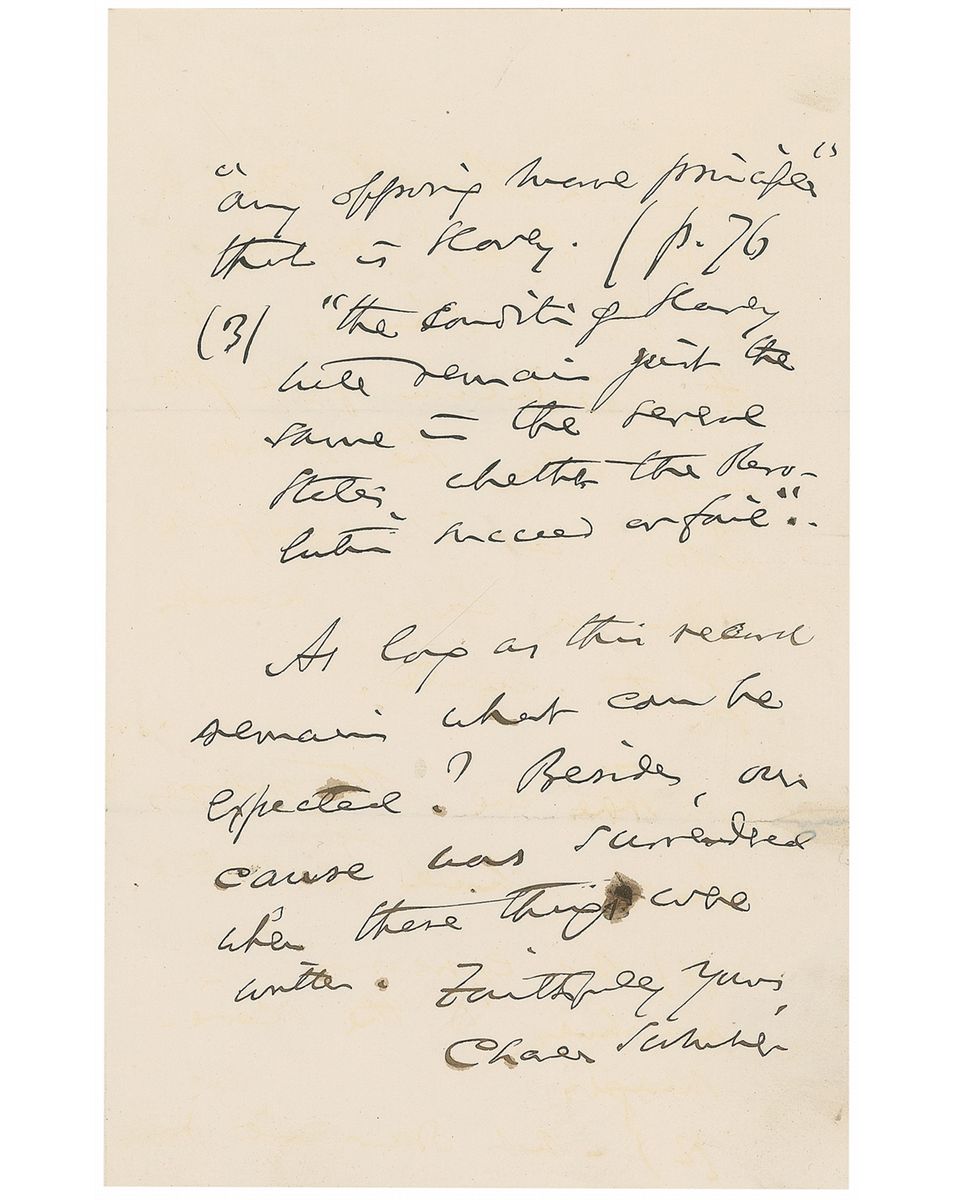 "any opposing moral principle"
that is Slavery. (p. 76
(3) "the condition of Slavery
will remain just the
same in the several
States, whether the Revo-
lution succeed or fail".
As long as this record
remains what can be
expected? Besides, our
cause was surrendered
when these things were
written. Faithfully Yours,
Charles Sumner